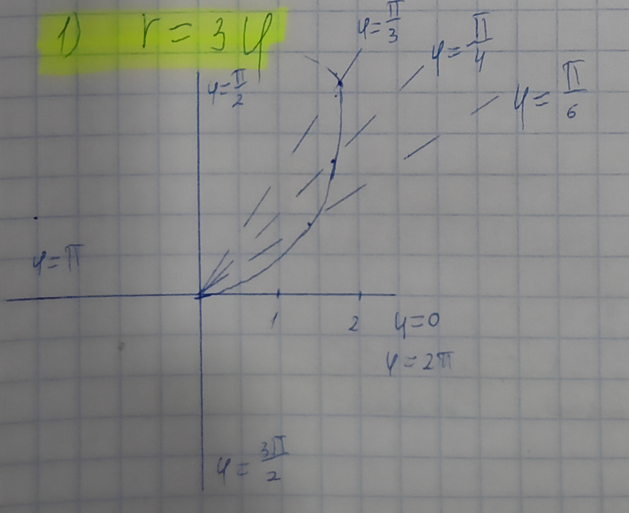 1) r = 3φ
φ = π/3
φ = π/4
φ = π/2
φ = π/6
φ = π
1 2 φ = 0
φ = 2π
φ = 3π/2